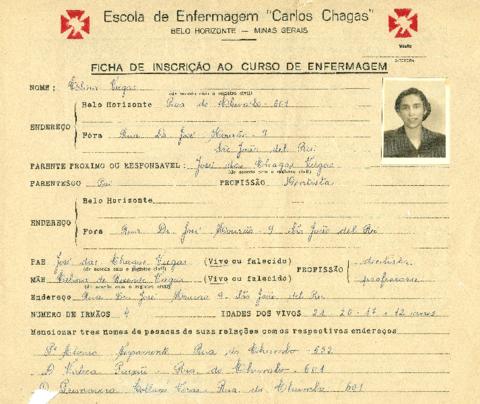 Escola de Enfermagem "Carlos Chagas"
BELO HORIZONTE — MINAS GERAIS
FICHA DE INSCRIÇÃO AO CURSO DE ENFERMAGEM
NOME: Viegas
(de acordo com o registro civil)
Belo Horizonte Rua do Chumbo - 601
ENDEREÇO
Fóra Rua Dr. José Mourão - 9
São João del Rei
PARENTE PROXIMO OU RESPONSAVEL: José das Chagas Viegas
(de acordo com o registro civil)
PARENTESCO Pai PROFISSÃO Dentista
Belo Horizonte
ENDEREÇO
Fóra Rua Dr. José Mourão - 9 São João del Rei
PAE José das Chagas Viegas (Vivo ou falecido) dentista
(de acordo com o registro civil) PROFISSÃO
MÃE de Viegas (Vivo ou falecido) professora
(de acordo com o registro civil)
Endereço: Rua Dr. José Mourão 9 São João del Rei
NUMERO DE IRMÃOS 4 IDADES DOS VIVOS 21 20 - 17 e 12 anos
Mencionar tres nomes de pessoas de suas relações com os respectivos endereços
Rua do Chumbo - 592
Rua do Chumbo - 601
Rua do Chumbo 601